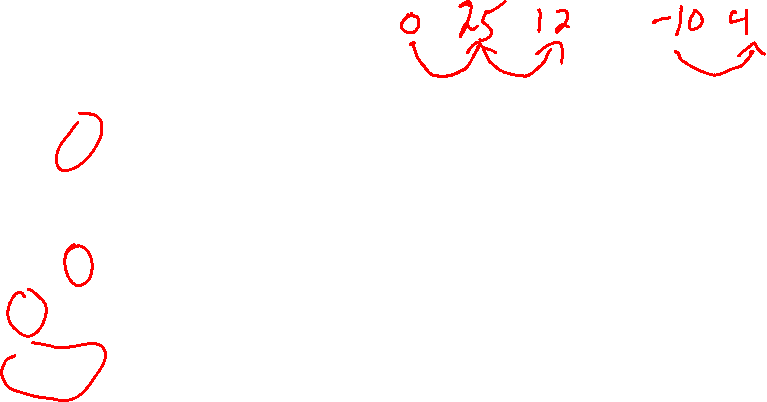 0 25 12 -10 4